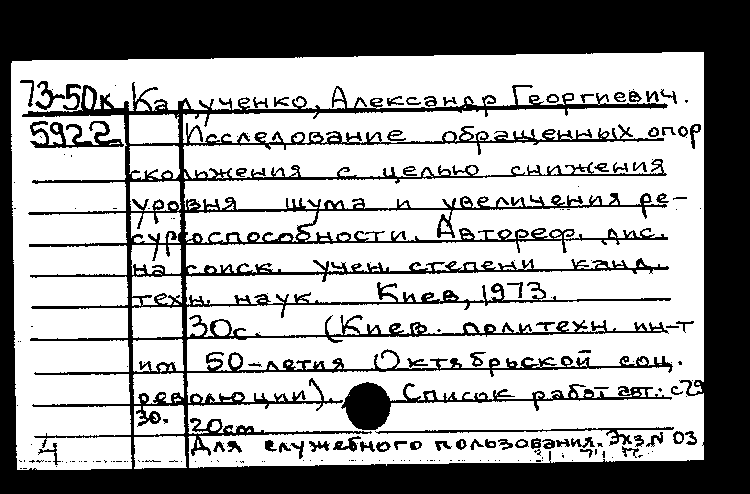 73-50к Калученко, Александр Георгиевич.
5922 Исследование обращенных опор
скольжения с целью снижения
уровня шума и увеличения ре-
сурсоспособности. Автореф. дис.
на соиск. учен. степени канд.
техн. наук. Киев, 1973.
30с. (Киев. политехн. ин-т
им 50-летия Октябрьской соц.
революции). Список работ авт.: с29
30. 20см.
4 Для служебного пользования. Экз.N 03